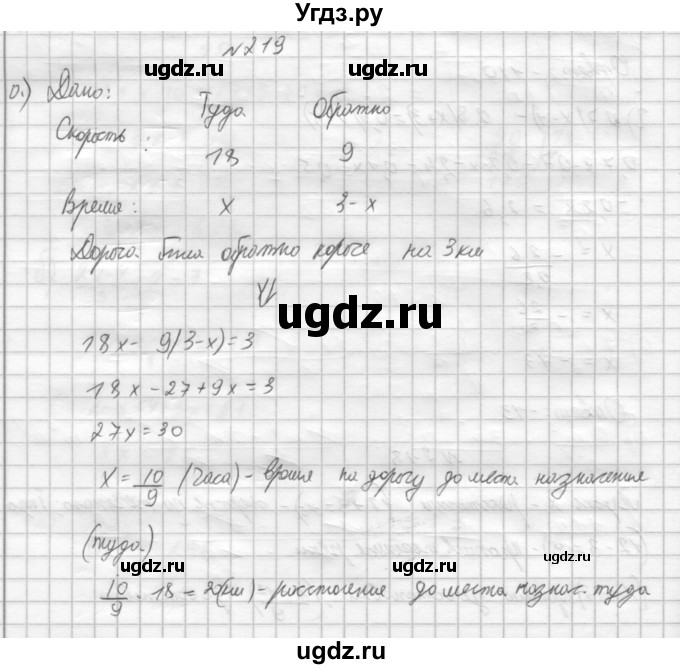 Угдз.ру
№219
ugdz.ru ugdz.ru
а.) Дано:
Туда Обратно
Скорость:
18 9
ugdz.ru ugdz.ru
Время: x 3-x
Дорога была обратно короче на 3 км
⇓
ugdz.ru
18x - 9(3-x)=3
18x - 27+9x=3
ugdz.ru ugdz.ru
27x=30
x = 10/9 (часа) - время на дорогу до места назначения
(туда)
ugdz.ru ugdz.ru
10/9 · 18 = 20(км) - расстояние до места назнач. туда
ugdz.ru